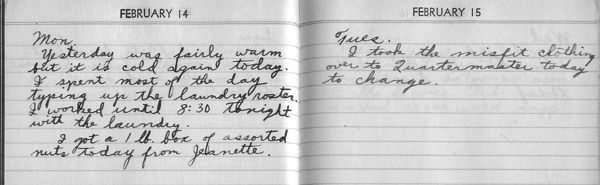 FEBRUARY 14
Mon.
Yesterday was fairly warm
but it is cold again today.
I spent most of the day
typing up the laundry roster.
I worked until 8:30 tonight
with the laundry.
I got a 1 lb. box of assorted
nuts today from Jeanette.
FEBRUARY 15
Tues.
I took the misfit clothing
over to Quartermaster today
to change.